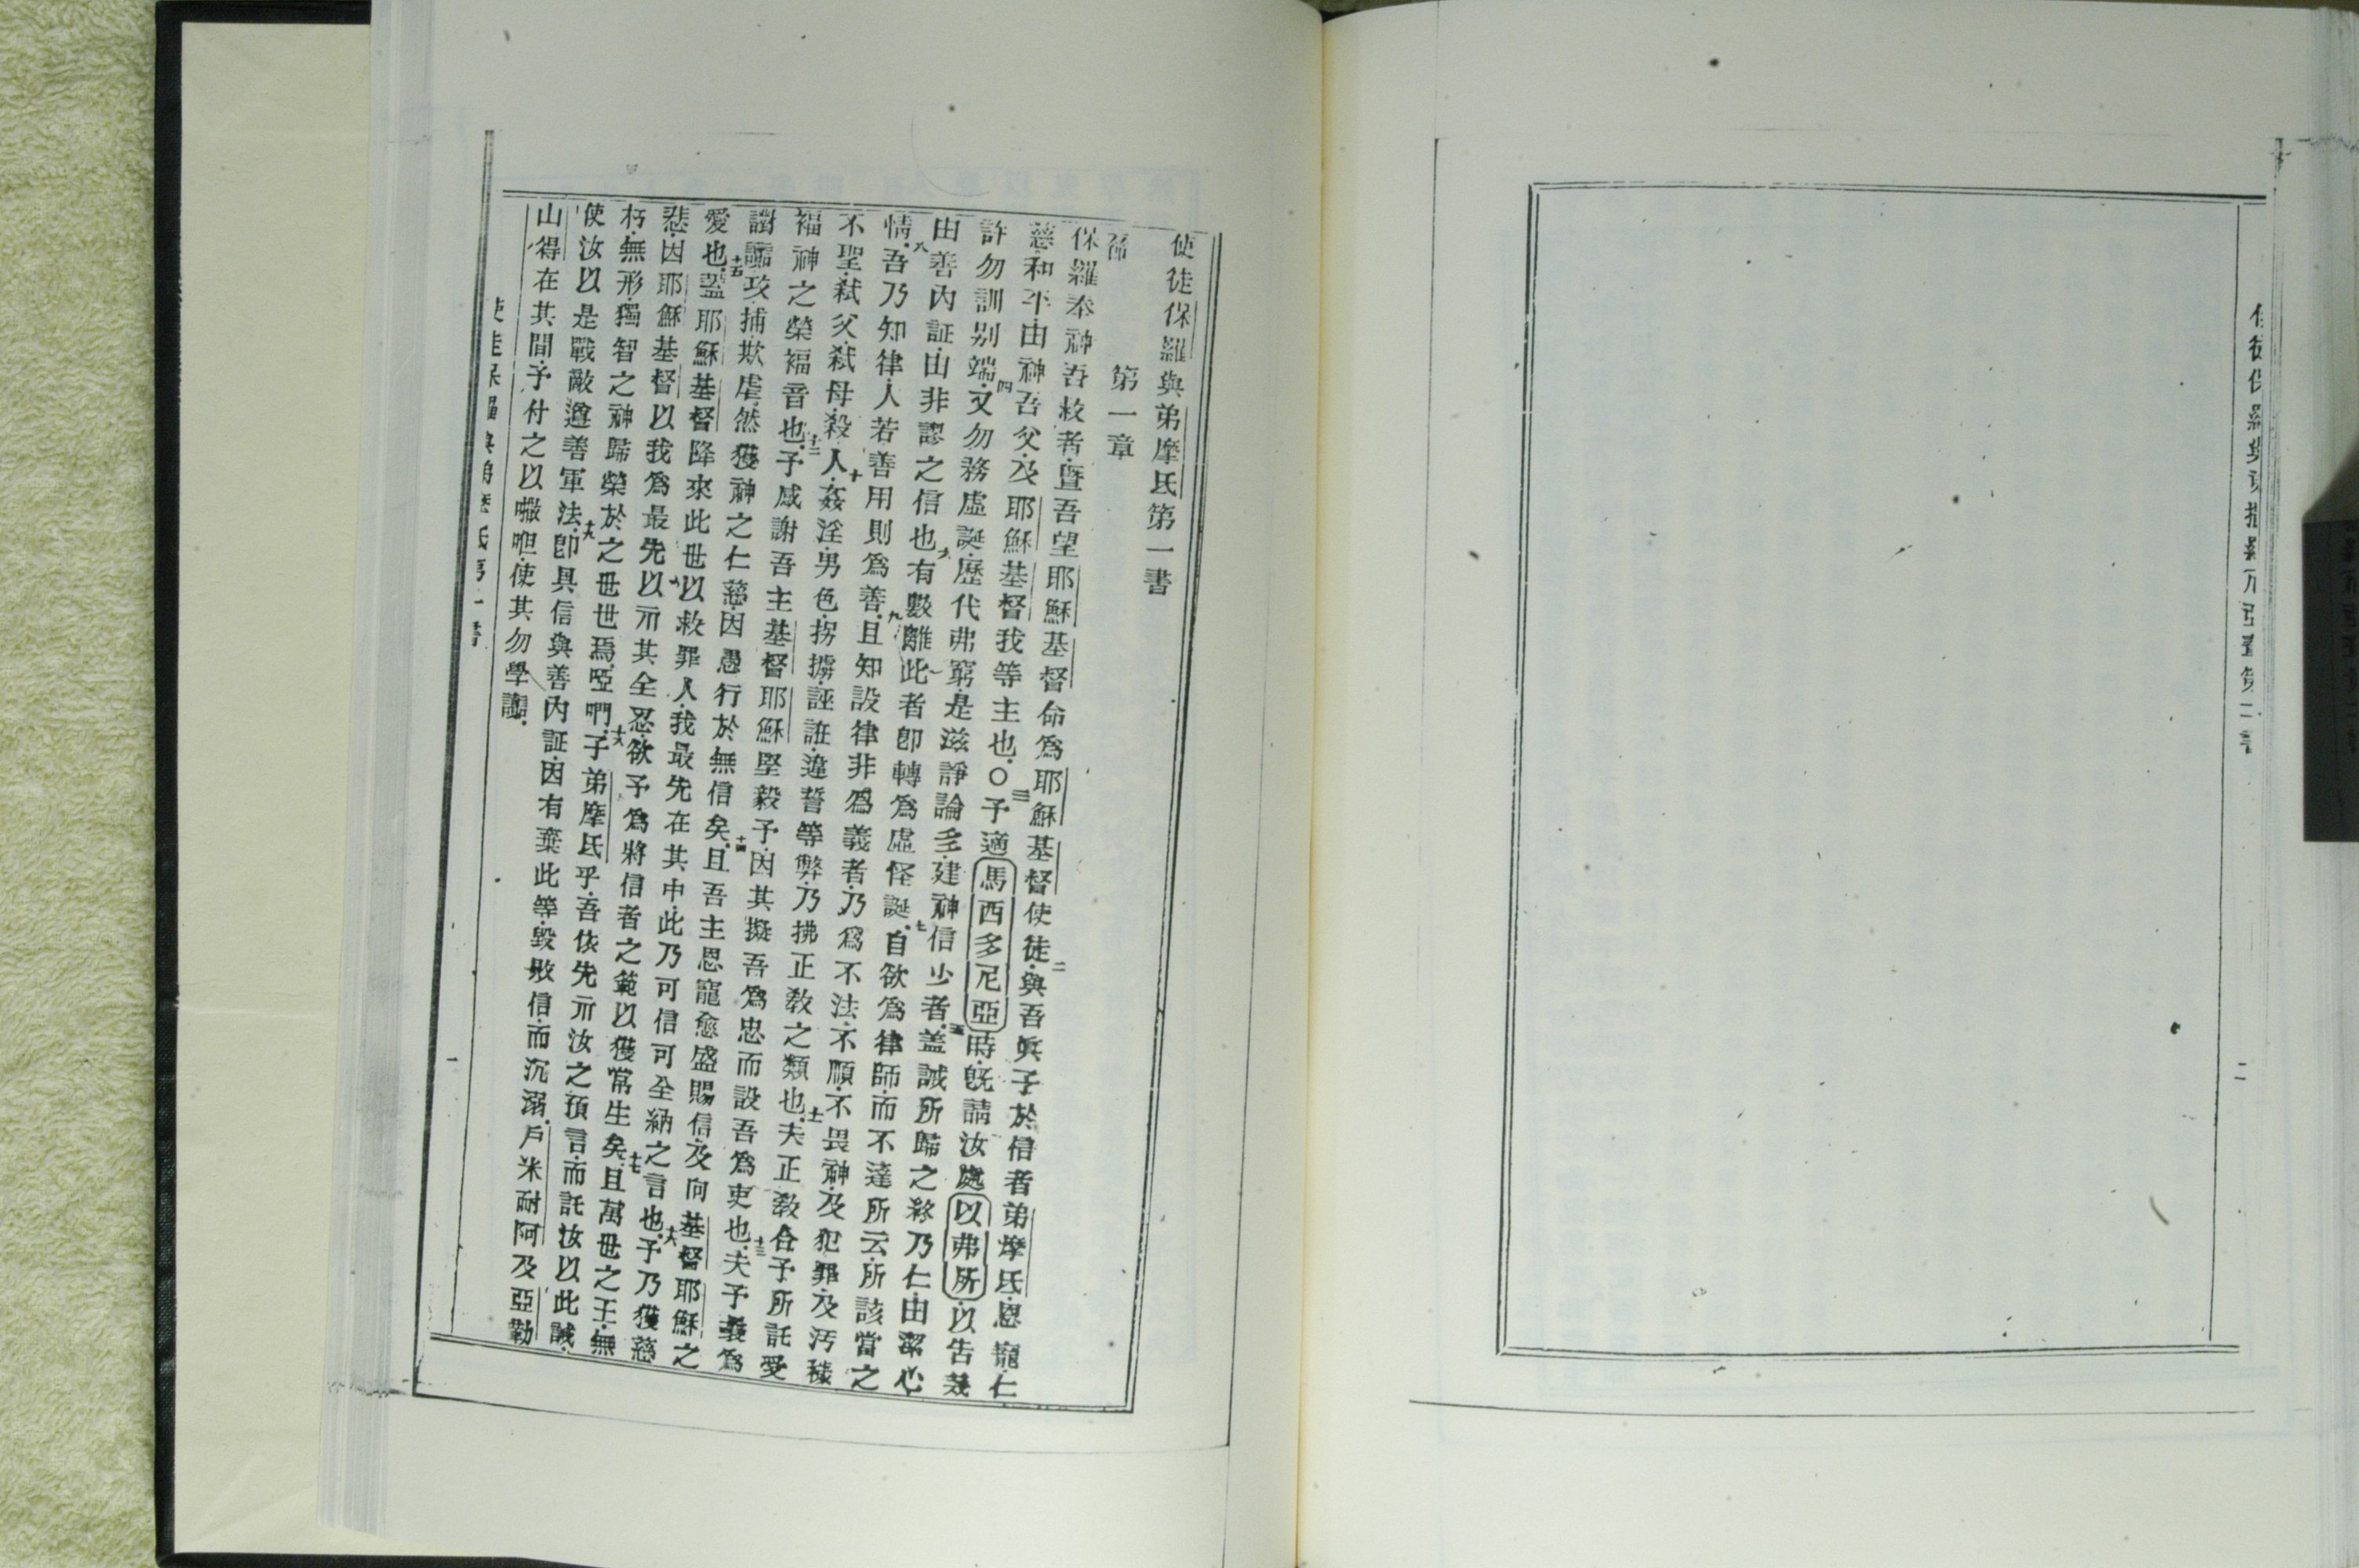 使徒保羅與弟摩氏第一書
第一章
保羅奉神吾救者曁吾望耶穌基督命爲耶穌基督使徒二與吾眞子於信者弟摩氏恩寵仁
慈和平由神吾父及耶穌基督我等主也○三予適馬西多尼亞時旣請汝處以弗所以告幾
許勿訓別端四又勿務虛誕歷代弗窮是滋諍論多建神信少者五盖誡所歸之終乃仁由潔心
由善內証由非謬之信也六有數離此者卽轉爲虛怪誕七自欲爲律師而不達所云所該當之
情八吾乃知律人若善用則爲善九且知設律非爲義者乃爲不法不順不畏神及犯罪及汚穢
不聖弒父弒母殺人十姦淫男色拐擄誣誑違誓等弊乃拂正敎之類也十一夫正敎合予所託愛
福神之榮福音也十二予感謝吾主基督耶穌堅毅予因其擬吾爲忠而設吾爲吏也十三夫予曩爲
讟攻捕欺虐然獲神之仁慈因愚行於無信矣十四且吾主恩寵愈盛賜信及向基督耶穌之
愛也十五蓋耶穌基督降來此世以救罪人我最先在其中此乃可信可全納之言也十六予乃獲慈
悲因耶穌基督以我爲最先以示其全忍欲予爲將信者之範以獲常生矣十七且萬世之王無
朽無形獨智之神歸榮於之世世焉啞啊十八子弟摩氏乎吾依先示汝之預言而託汝以此誡
使汝以是戰敵遵善軍法十九卽具信與善內証因有棄此等毀敗信而沉溺戶米耐阿及亞勒
山得在其間予付之以𠹌呾使其勿學讟
使徒保羅與弟摩氏第一書
一
二